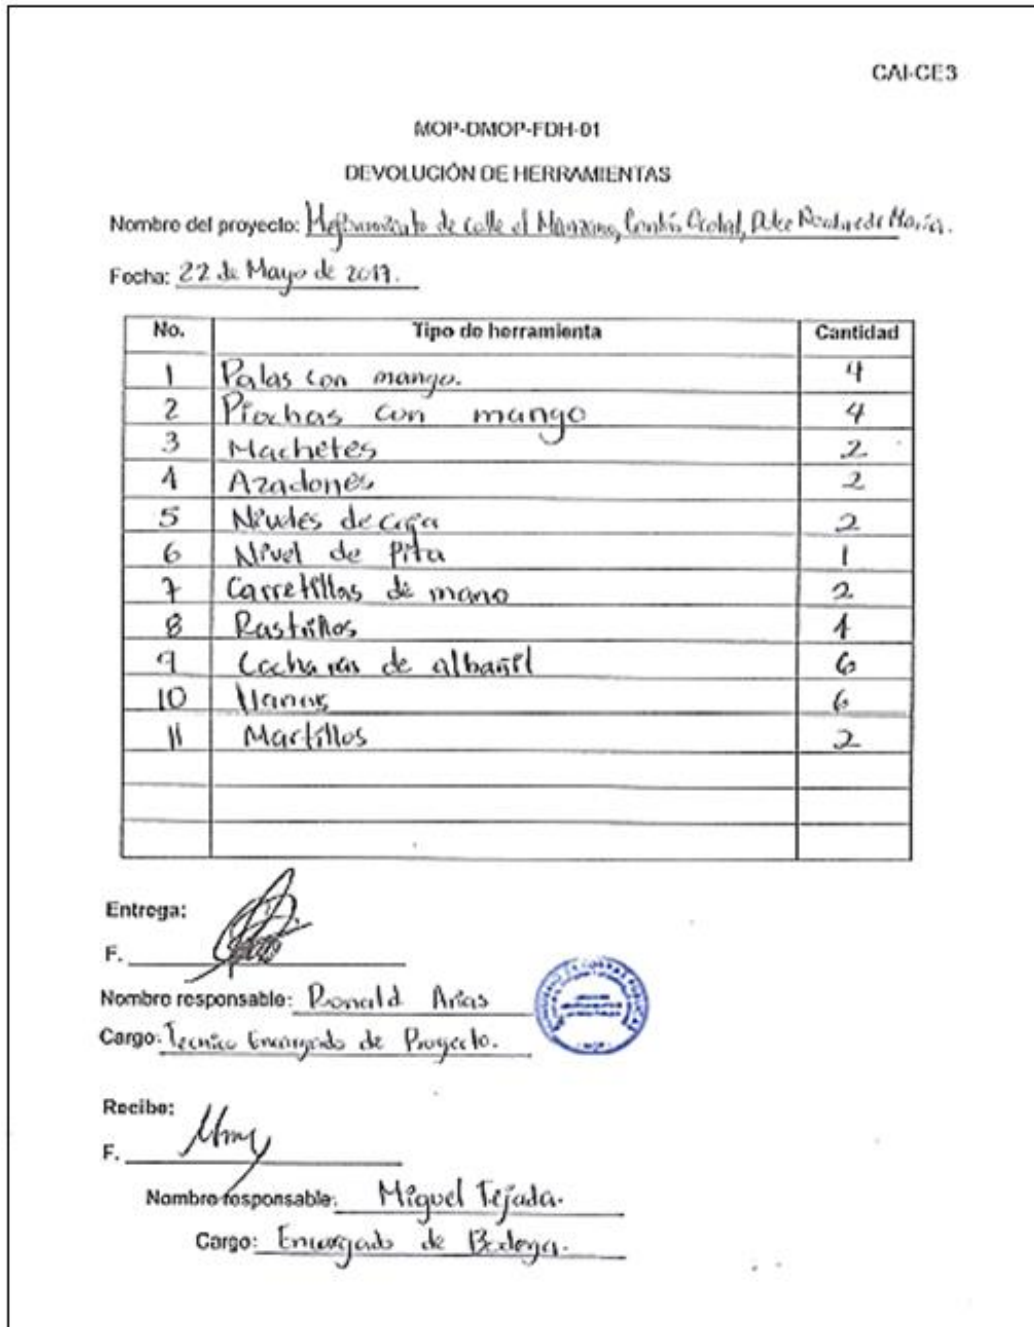 CAI-CE3
MOP-DMOP-FDH-01
DEVOLUCIÓN DE HERRAMIENTAS
Nombre del proyecto: Mejoramiento de calle el Manzano, Cantón, Dulce Nombre de María.
Fecha: 22 de Mayo de 2017.
No. Tipo de herramienta Cantidad
1 Palas con mango. 4
2 Piochas con mango 4
3 Machetes 2
4 Azadones 2
5 Niveles de caja 2
6 Nivel de pita 1
7 Carretillas de mano 2
8 Rastrillos 4
9 Cucharas de albañil 6
10 llanas 6
11 Martillos 2
Entrega:
F.
Nombre responsable: Ronald Arias
Cargo: Tecnico Encargado de Proyecto.
Recibe:
F.
Nombre responsable: Miguel Tejada.
Cargo: Encargado de Bodega.